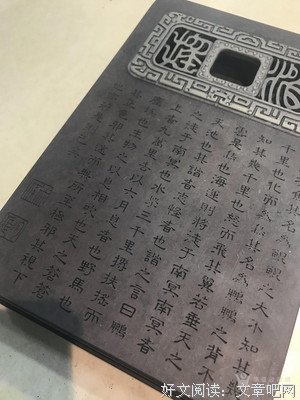 其名為鯤鯤之大不知其幾
千里也化而為鳥其名為鵬鵬之背不
知其幾千里也怒而飛其翼若垂天之
雲是鳥也海運則將徙于南冥南冥者
天池也齊諧者志怪者也諧之言曰鵬
之徙于南冥也水擊三千里摶扶搖而
上者九萬里去以六月息者也野馬也
塵埃也生物之以息相吹也天之蒼蒼
其正色邪其遠而無所至極邪其視下
也亦若是則已矣
好文阅读：文章吧网